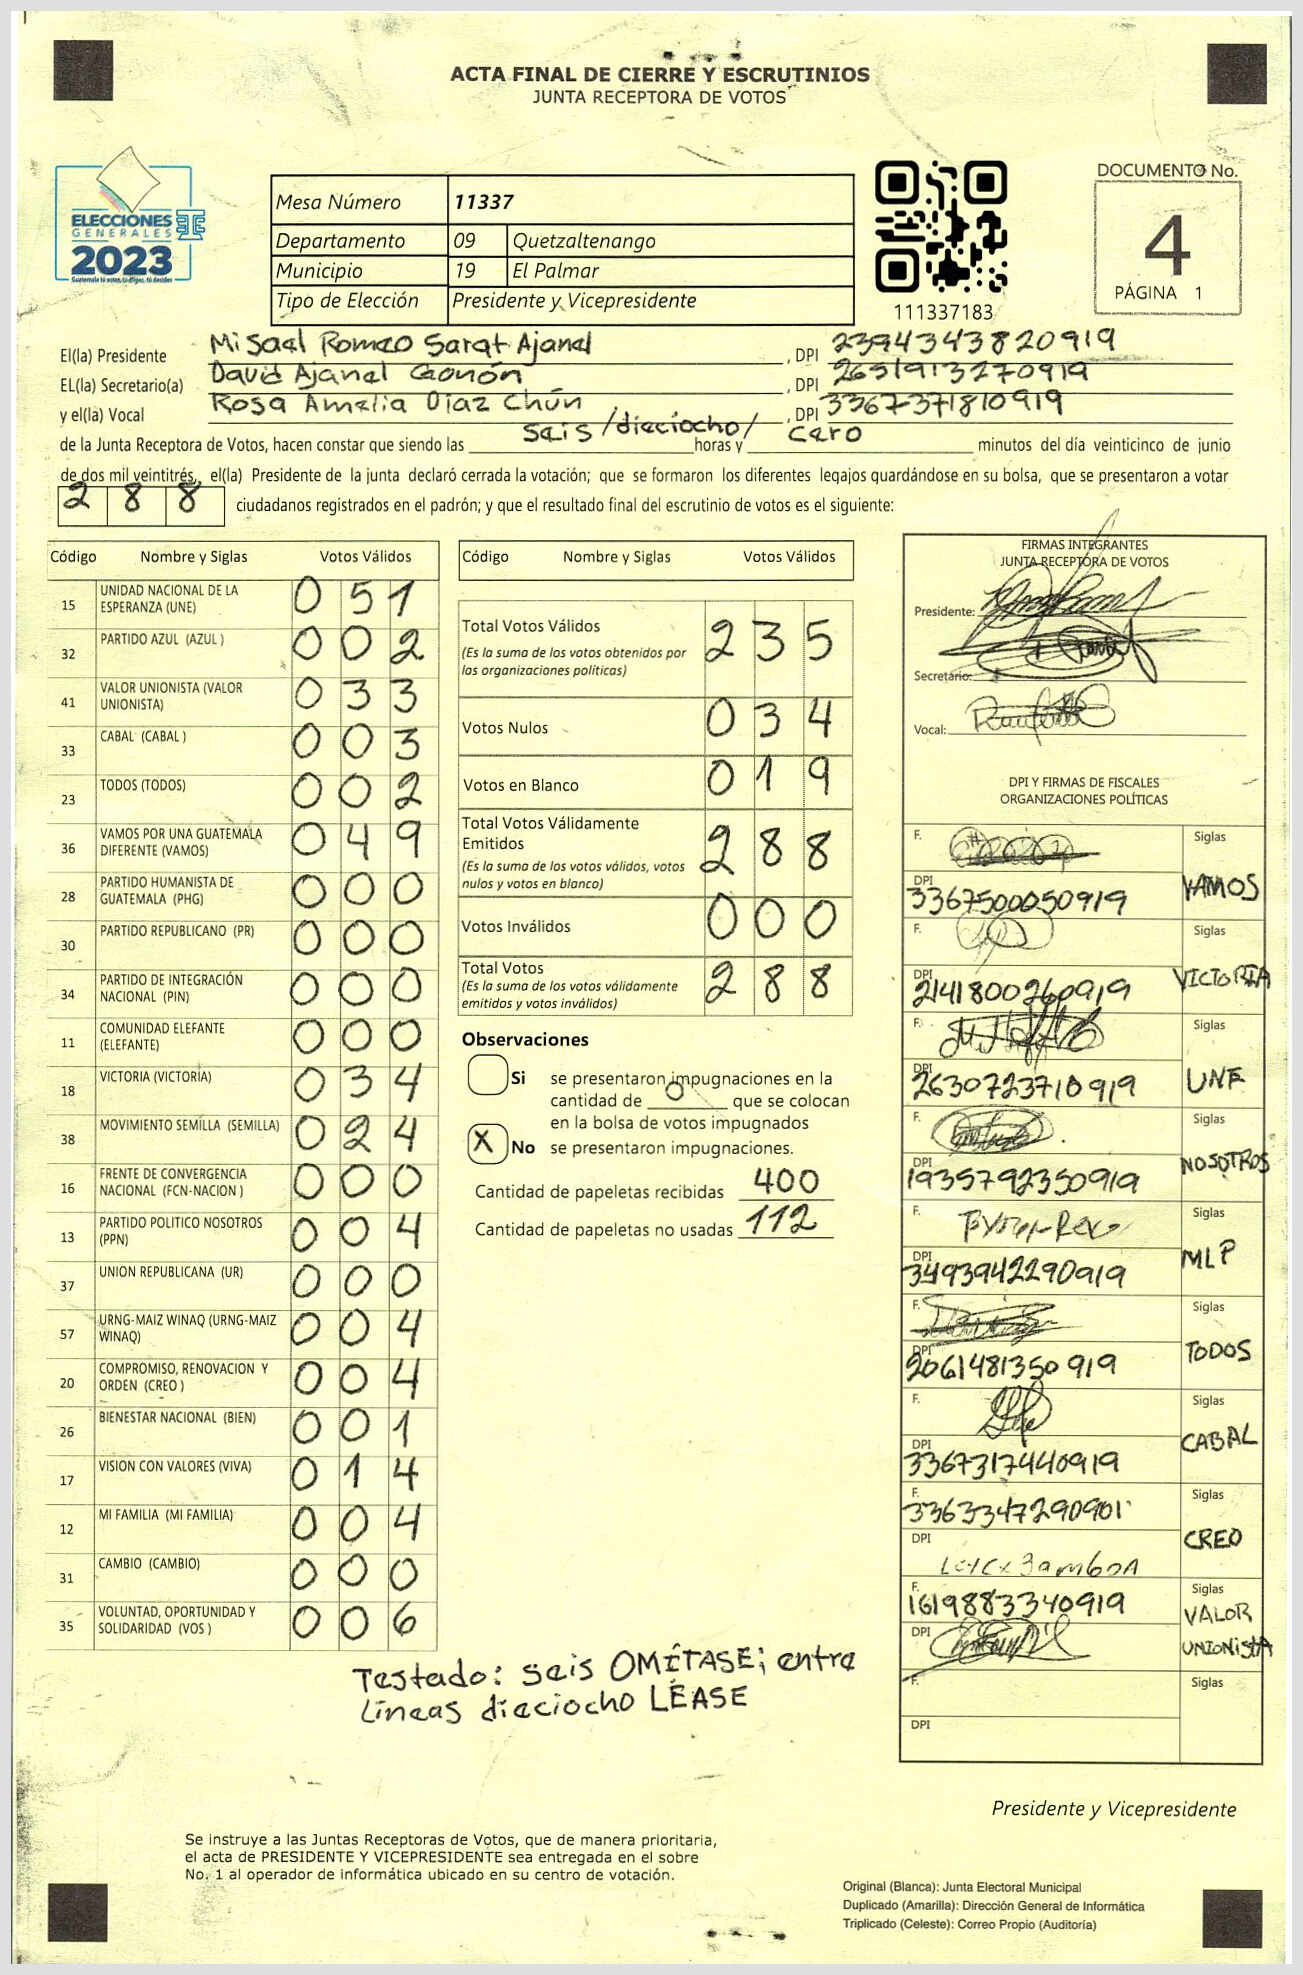 ACTA FINAL DE CIERRE Y ESCRUTINIOS
JUNTA RECEPTORA DE VOTOS
ELECCIONES
GENERALES
2023
Mesa Número 11337
Departamento 09 Quetzaltenango
Municipio 19 El Palmar
Tipo de Elección Presidente y Vicepresidente
111337183
DOCUMENTO No.
4
PÁGINA 1
El(la) Presidente Misael Romeo Sarat Ajanel , DPI 2394343820919
EL(la) Secretario(a) David Ajanel Coonón , DPI 2651913270919
y el(la) Vocal Rosa Amelia Díaz Chún , DPI 3367371810919
de la Junta Receptora de Votos, hacen constar que siendo las seis /dieciocho/ horas y cero minutos del día veinticinco de junio
de dos mil veintitrés, el(la) Presidente de la junta declaró cerrada la votación; que se formaron los diferentes legajos guardándose en su bolsa, que se presentaron a votar
288 ciudadanos registrados en el padrón; y que el resultado final del escrutinio de votos es el siguiente:
Código Nombre y Siglas Votos Válidos
15 UNIDAD NACIONAL DE LA ESPERANZA (UNE) 051
32 PARTIDO AZUL (AZUL ) 002
41 VALOR UNIONISTA (VALOR UNIONISTA) 033
33 CABAL (CABAL ) 003
23 TODOS (TODOS) 002
36 VAMOS POR UNA GUATEMALA DIFERENTE (VAMOS) 049
28 PARTIDO HUMANISTA DE GUATEMALA (PHG) 000
30 PARTIDO REPUBLICANO (PR) 000
34 PARTIDO DE INTEGRACIÓN NACIONAL (PIN) 000
11 COMUNIDAD ELEFANTE (ELEFANTE) 000
18 VICTORIA (VICTORIA) 034
38 MOVIMIENTO SEMILLA (SEMILLA) 024
16 FRENTE DE CONVERGENCIA NACIONAL (FCN-NACION ) 000
13 PARTIDO POLITICO NOSOTROS (PPN) 004
37 UNION REPUBLICANA (UR) 000
57 URNG-MAIZ WINAQ (URNG-MAIZ WINAQ) 004
20 COMPROMISO, RENOVACION Y ORDEN (CREO ) 004
26 BIENESTAR NACIONAL (BIEN) 001
17 VISION CON VALORES (VIVA) 014
12 MI FAMILIA (MI FAMILIA) 004
31 CAMBIO (CAMBIO) 000
35 VOLUNTAD, OPORTUNIDAD Y SOLIDARIDAD (VOS ) 006
Código Nombre y Siglas Votos Válidos
Total Votos Válidos 235
(Es la suma de los votos obtenidos por
las organizaciones políticas)
Votos Nulos 034
Votos en Blanco 019
Total Votos Válidamente
Emitidos 288
(Es la suma de los votos válidos, votos
nulos y votos en blanco)
Votos Inválidos 000
Total Votos 288
(Es la suma de los votos válidamente
emitidos y votos inválidos)
Observaciones
Si se presentaron impugnaciones en la
cantidad de 0 que se colocan
en la bolsa de votos impugnados
X No se presentaron impugnaciones.
Cantidad de papeletas recibidas 400
Cantidad de papeletas no usadas 112
Testado: seis OMÍTASE; entre
líneas dieciocho LÉASE
FIRMAS INTEGRANTES
JUNTA RECEPTORA DE VOTOS
Presidente:
Secretario:
Vocal:
DPI Y FIRMAS DE FISCALES
ORGANIZACIONES POLÍTICAS
F. Siglas
DPI 3367500050919 VAMOS
F. Siglas
DPI 2141800260919 VICTORIA
F. Siglas
DPI 2630723710919 UNE
F. Siglas
DPI 1935792350919 NOSOTROS
F. Siglas
DPI 3493942290919 MLP
F. Siglas
DPI 2061481350919 TODOS
F. Siglas
DPI 3367317440919 CABAL
F. 3363347290901 Siglas
DPI CREO
F. 1619883340919 Siglas
DPI VALOR UNIONISTA
F. Siglas
DPI
Presidente y Vicepresidente
Se instruye a las Juntas Receptoras de Votos, que de manera prioritaria,
el acta de PRESIDENTE Y VICEPRESIDENTE sea entregada en el sobre
No. 1 al operador de informática ubicado en su centro de votación.
Original (Blanca): Junta Electoral Municipal
Duplicado (Amarilla): Dirección General de Informática
Triplicado (Celeste): Correo Propio (Auditoría)